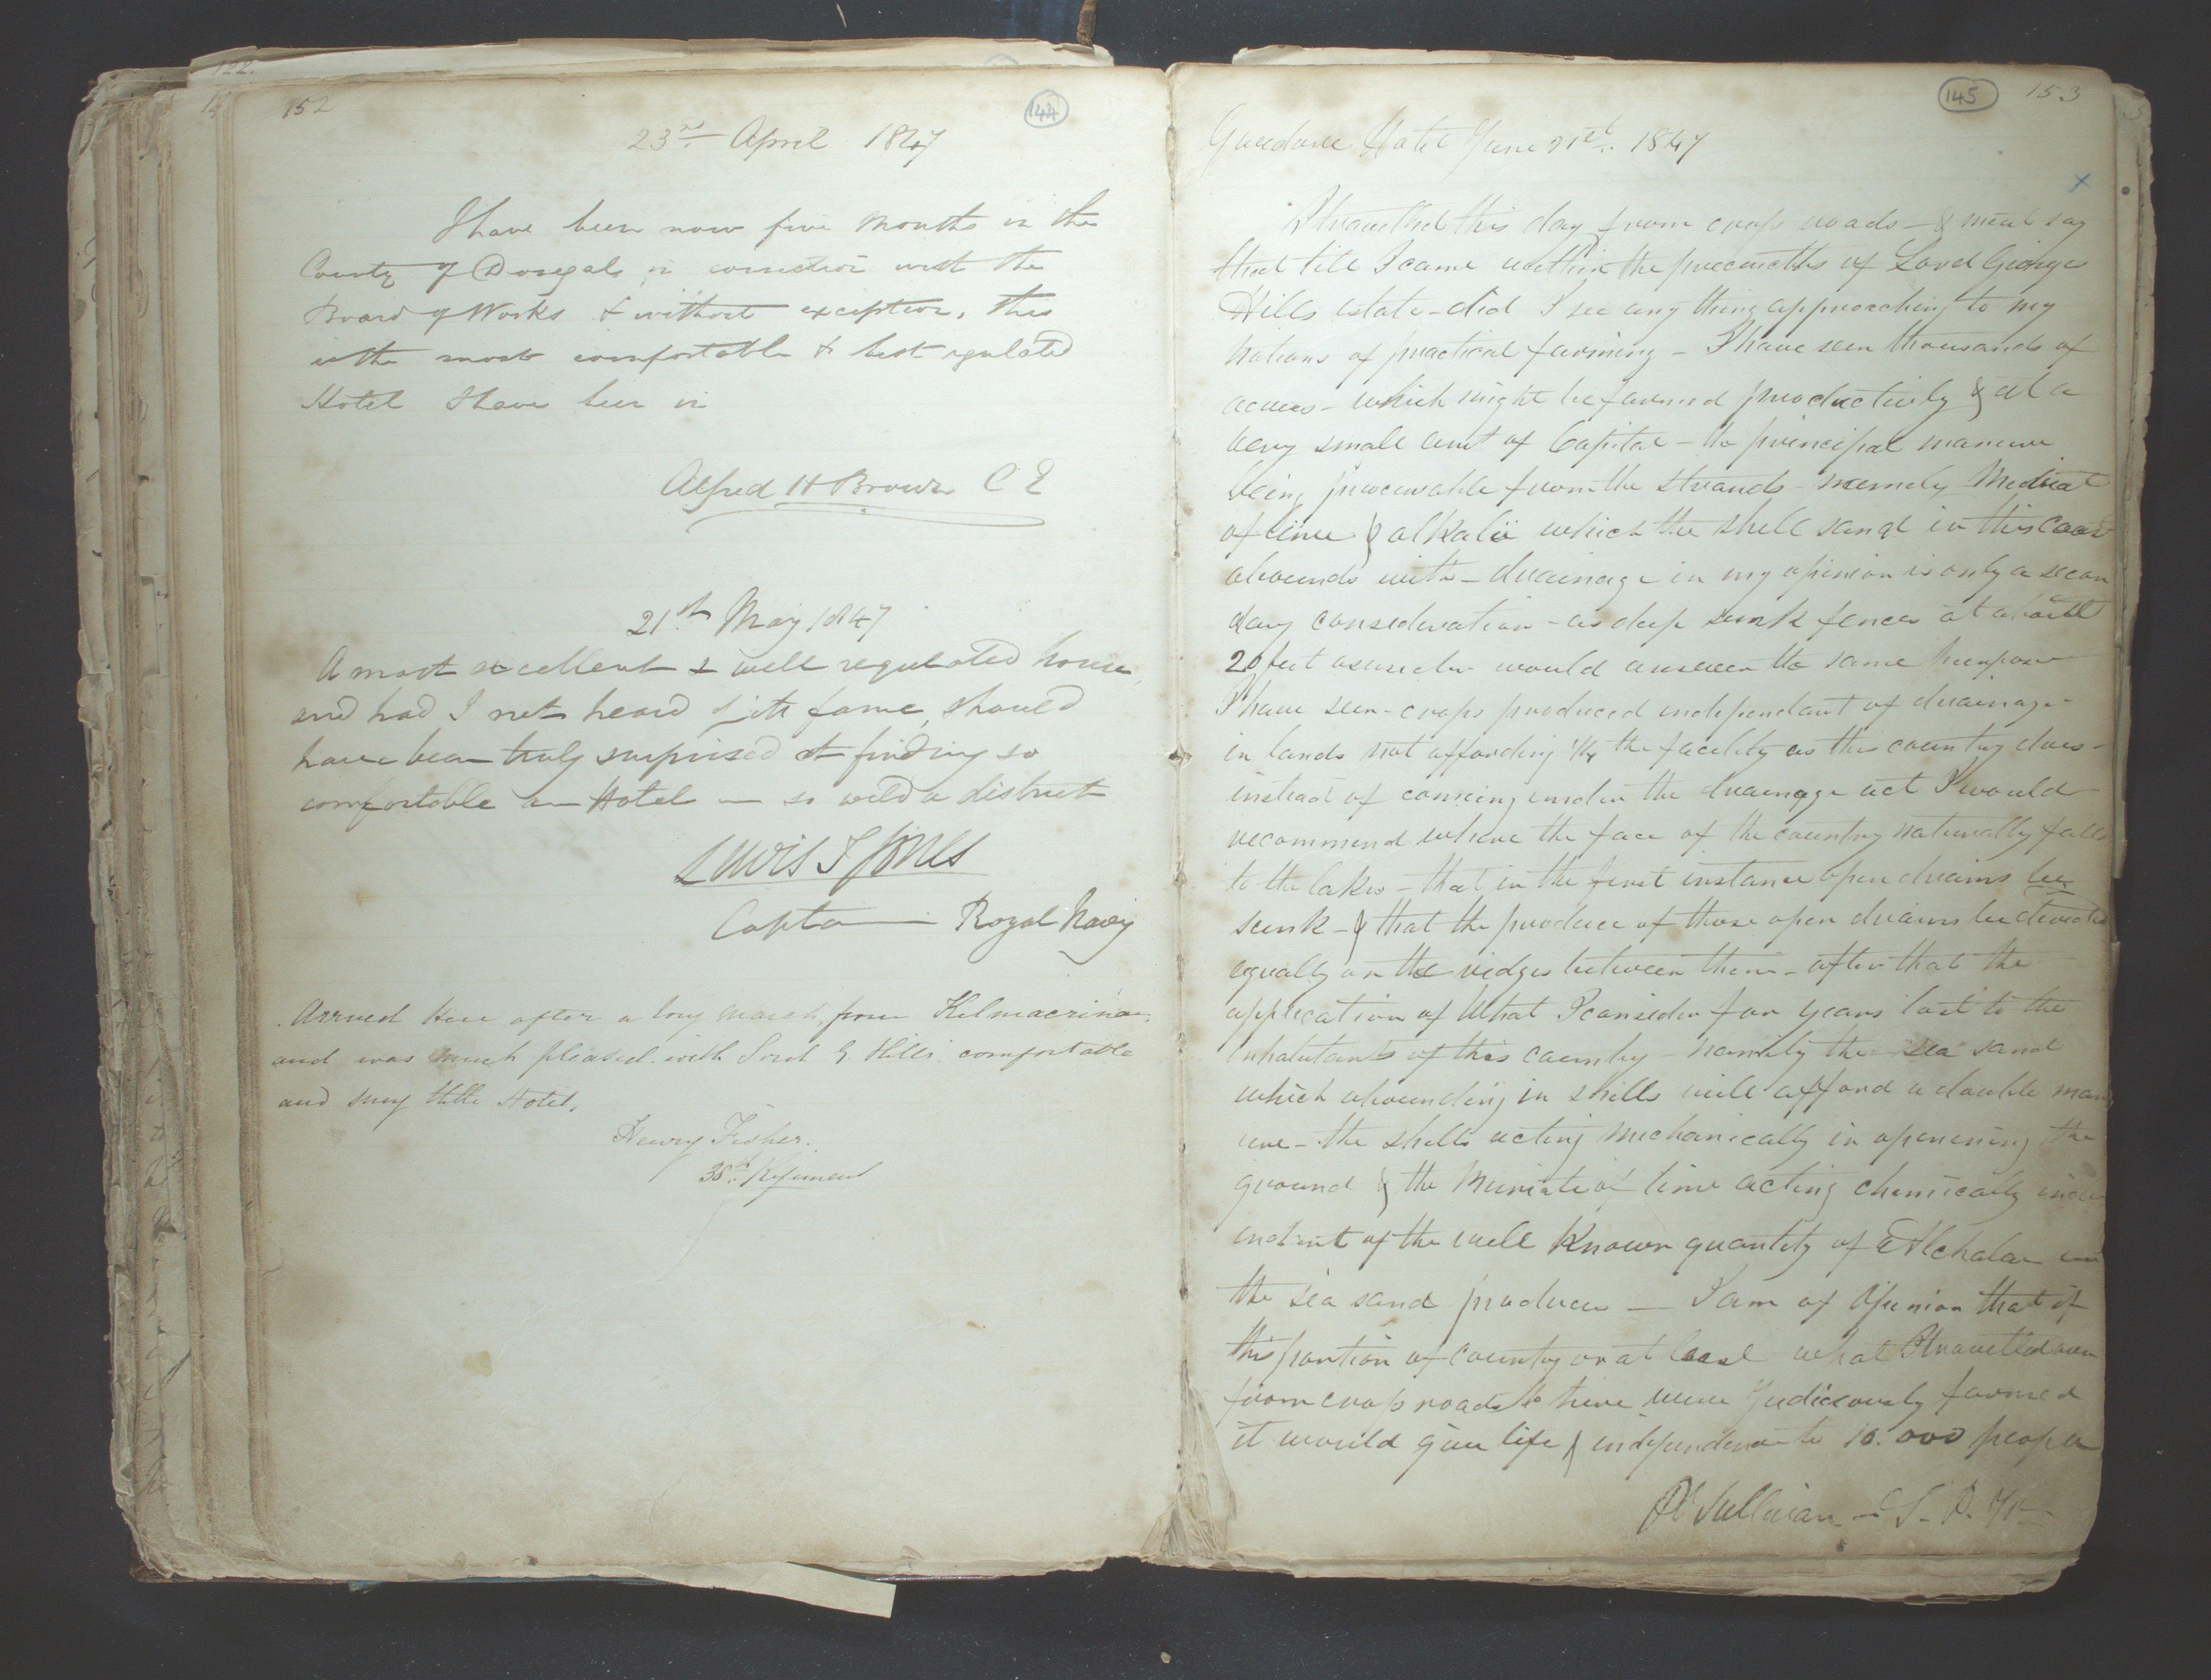 152
144
23rd April 1847
I have been now five Months in the
County of Donegal, in connection with the
Board of Works & without exception, this
is the most comfortable & best regulated
Hotel I have been in
Alfred H Brown C E
21st May 1847
A most excellent & well regulated house,
and had I not heard of its fame, should
have been truly surprised at finding so
comfortable an Hotel in so wild a district
Lewis T Jones
Captain Royal Navy
Arrived here after a long march, from Kilmacrinan,
and was much pleased with Lord G. Hills comfortable
and snug little Hotel.
Henry Fisher.
38th Regiment
145
153
Gweedore Hotel June 21st. 1847
x
I travelled this day from cross roads - & must say
that till I came within the precincts of Lord George
Hills estate - did I see any thing approaching to my
notions of practical farming - I have seen thousands of
acres - which might be farmed productively & at a
very small amt of Capital - the principal manure
being procurable from the strands - namely Muriat
of lime & alkali which the shell sand in this Coast
abounds with - drainage in my opinion is only a secon
dary consideration - as deep sunk fences at about
20 feet asunder would answer the same purpose
I have seen - crops produced independant of drainage
in lands not affording 1/4 the facility as this country does -
instead of coming under the drainage act I would
recommend where the face of the country naturally falls
to the lakes - that in the first instance open drains be
sunk - & that the produce of those open drains be divided
equally on the ridges between them - after that the
application of What I consider for years lost to the
inhabitants of this country - namely the sea sand
which abounding in shells will afford a double man
ure - the shells acting mechanically in openening the
ground & the Muriate of lime acting chemically inde
endent of the well Known quantity of
the sea sand produces - I am of Opinion that if
this portion of country or at least what I travelled over
from cross roads to here were Judiciously farmed
it would give life & independence to 10.000 people
O'Sullivan